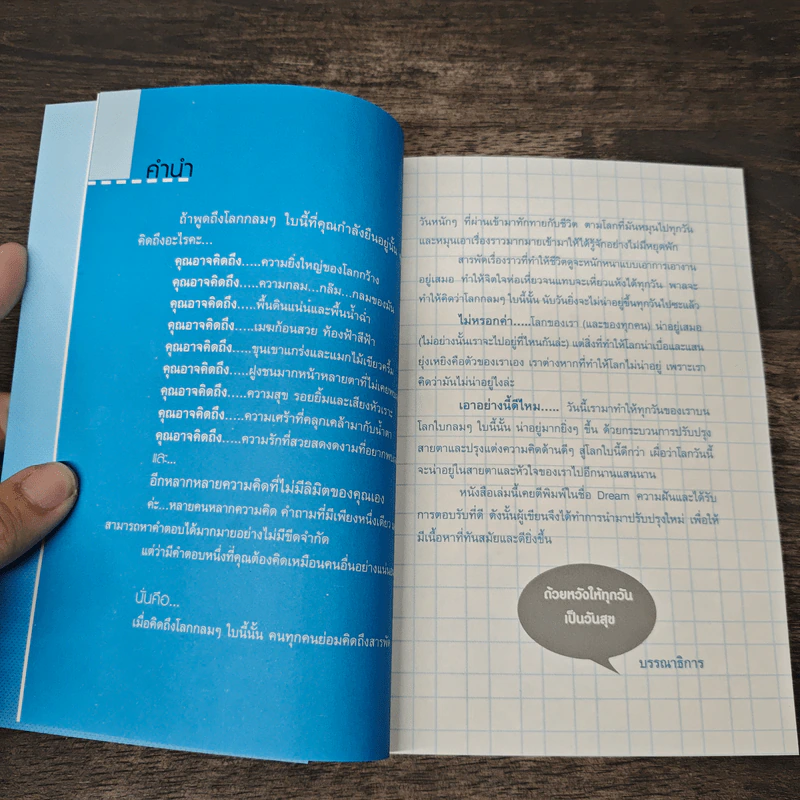 คำนำ
ถ้าพูดถึงโลกกลมๆ ใบนี้ที่คุณกำลังยืนอยู่นั้น
คิดถึงอะไรคะ...
คุณอาจคิดถึง.....ความยิ่งใหญ่ของโลกกว้าง
คุณอาจคิดถึง.....ความกลม...กล๊ม...กลมของมัน
คุณอาจคิดถึง.....พื้นดินแน่นและพื้นน้ำฉ่ำ
คุณอาจคิดถึง.....เมฆก้อนสวย ท้องฟ้าสีฟ้า
คุณอาจคิดถึง.....ขุนเขาแกร่งและแมกไม้เขียวครึ้ม
คุณอาจคิดถึง.....ฝูงชนมากหน้าหลายตาที่ไม่เคย
คุณอาจคิดถึง.....ความสุข รอยยิ้มและเสียงหัวเราะ
คุณอาจคิดถึง.....ความเศร้าที่คลุกเคล้ามากับน้ำตา
คุณอาจคิดถึง.....ความรักที่สวยสดงดงามที่อยาก
และ...
อีกหลากหลายความคิดที่ไม่มีลิมิตของคุณเอง
ค่ะ...หลายคนหลากความคิด คำถามที่มีเพียงหนึ่งเดียว
สามารถหาคำตอบได้มากมายอย่างไม่มีขีดจำกัด
แต่ว่ามีคำตอบหนึ่งที่คุณต้องคิดเหมือนคนอื่นอย่าง
นั่นคือ...
เมื่อคิดถึงโลกกลมๆ ใบนี้นั้น คนทุกคนย่อมคิดถึงสารพัด
วันหนักๆ ที่ผ่านเข้ามาทักทายกับชีวิต ตามโลกที่มันหมุนไปทุกวัน
และหมุนเอาเรื่องราวมากมายเข้ามาให้ได้รู้จักอย่างไม่มีหยุดพัก
สารพัดเรื่องราวที่ทำให้ชีวิตดูจะหนักหนาแบบเอาการเอางาน
อยู่เสมอ ทำให้จิตใจห่อเหี่ยวจนแทบจะเหี่ยวแห้งได้ทุกวัน พาลจะ
ทำให้คิดว่าโลกกลมๆ ใบนี้นั้น นับวันยิ่งจะไม่น่าอยู่ขึ้นทุกวันไปซะแล้ว
ไม่หรอกค่ำ.....โลกของเรา (และของทุกคน) น่าอยู่เสมอ
(ไม่อย่างนั้นเราจะไปอยู่ที่ไหนกันล่ะ) แต่สิ่งที่ทำให้โลกน่าเบื่อและแสน
ยุ่งเหยิงคือตัวของเราเอง เราต่างหากที่ทำให้โลกไม่น่าอยู่ เพราะเรา
คิดว่ามันไม่น่าอยู่ไงล่ะ
เอาอย่างนี้ดีไหม..... วันนี้เรามาทำให้ทุกวันของเราบน
โลกใบกลมๆ ใบนี้นั้น น่าอยู่มากยิ่งๆ ขึ้น ด้วยกระบวนการปรับปรุง
สายตาและปรุงแต่งความคิดด้านดีๆ สู่โลกใบนี้ดีกว่า เผื่อว่าโลกวันนี้
จะน่าอยู่ในสายตาและหัวใจของเราไปอีกนานแสนนาน
หนังสือเล่มนี้เคยตีพิมพ์ในชื่อ Dream ความฝันและได้รับ
การตอบรับที่ดี ดังนั้นผู้เขียนจึงได้ทำการนำมาปรับปรุงใหม่ เพื่อให้
มีเนื้อหาที่ทันสมัยและดียิ่งขึ้น
ด้วยหวังให้ทุกวัน
เป็นวันสุข
บรรณาธิการ